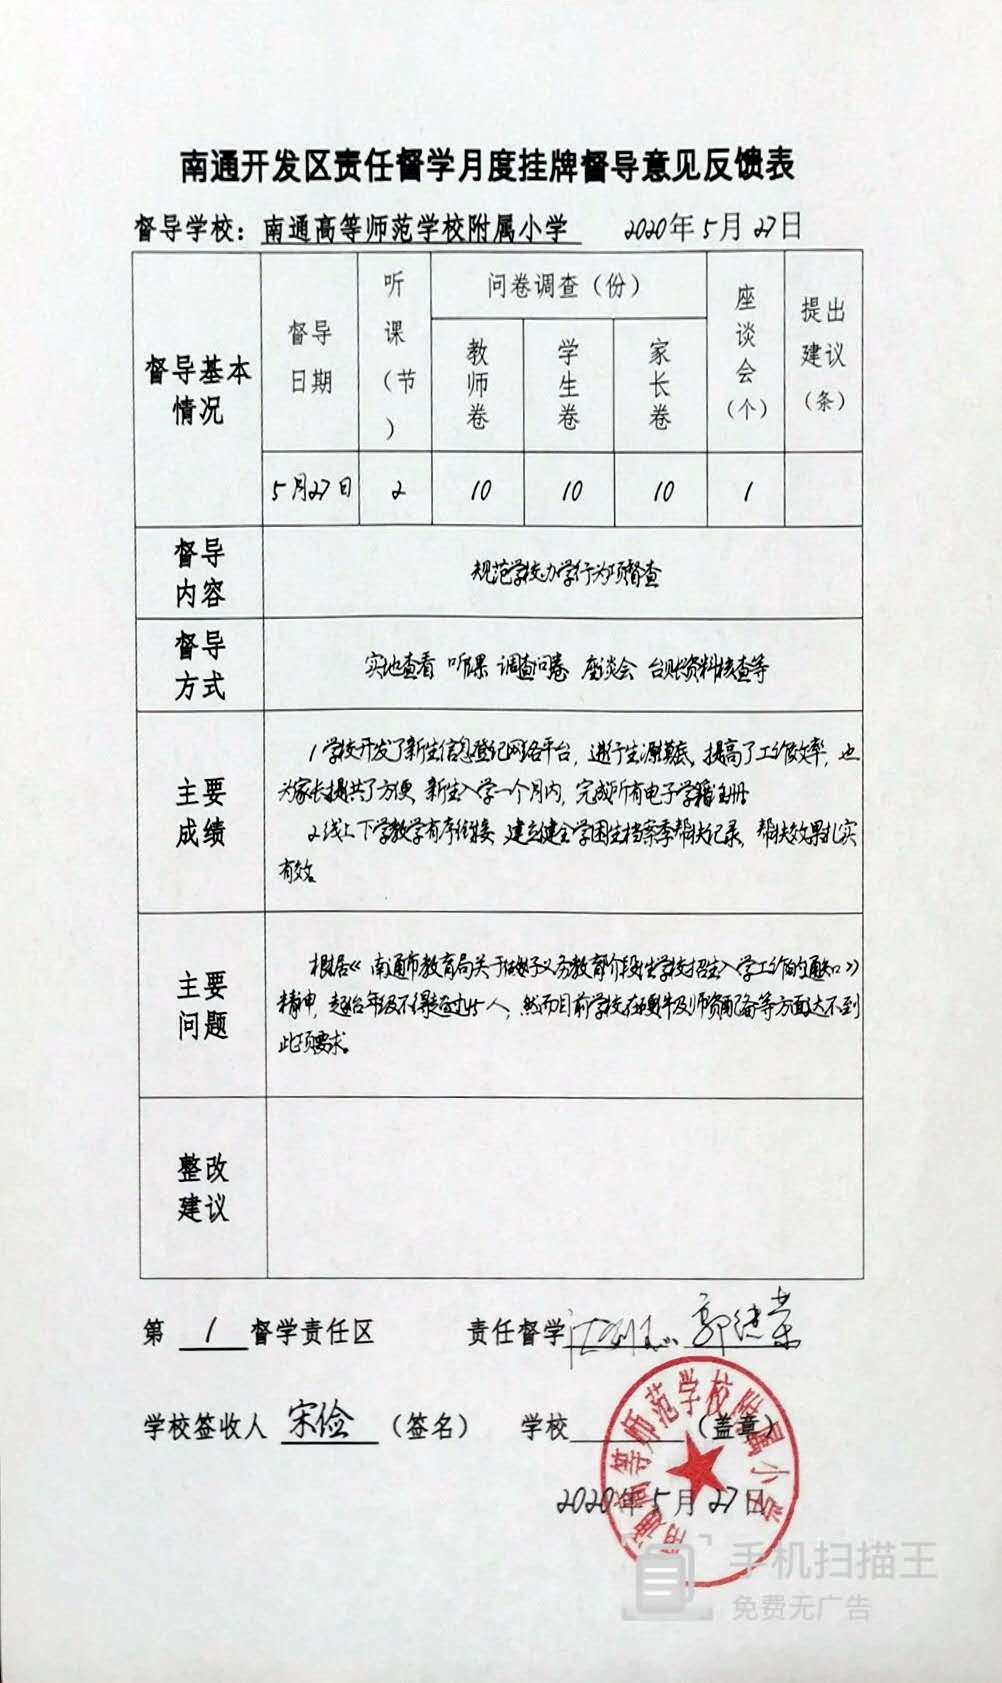 南通开发区责任督学月度挂牌督导意见反馈表
督导学校：南通高等师范学校附属小学 2020年5月27日
督导基本情况
督导日期
听课（节）
问卷调查（份）
教师卷
学生卷
家长卷
座谈会（个）
提出建议（条）
5月27日 2 10 10 10 1
督导内容
规范学校办学行为项督查
督导方式
实地查看 听课 调查问卷 座谈会 台账资料核查等
主要成绩
1学校开发了新生信息登记网络平台，进行生源摸底，提高了工作效率，也
为家长提供了方便，新生入学一个月内，完成所有电子学籍注册
2线上下学教学有序衔接，建立健全学困生档案季帮扶记录，帮扶效果扎实
有效。
主要问题
根据《南通市教育局关于做好义务教育阶段学校招生入学工作的通知》
精神，起始年级不得超过45人，然而目前学校在硬件及师资配备等方面达不到
此项要求。
整改建议
第 1 督学责任区 责任督学 郭继荣
学校签收人 宋俭 （签名） 学校 （盖章）
2020年5月27日
南通高等师范学校附属小学
手机扫描王
免费无广告